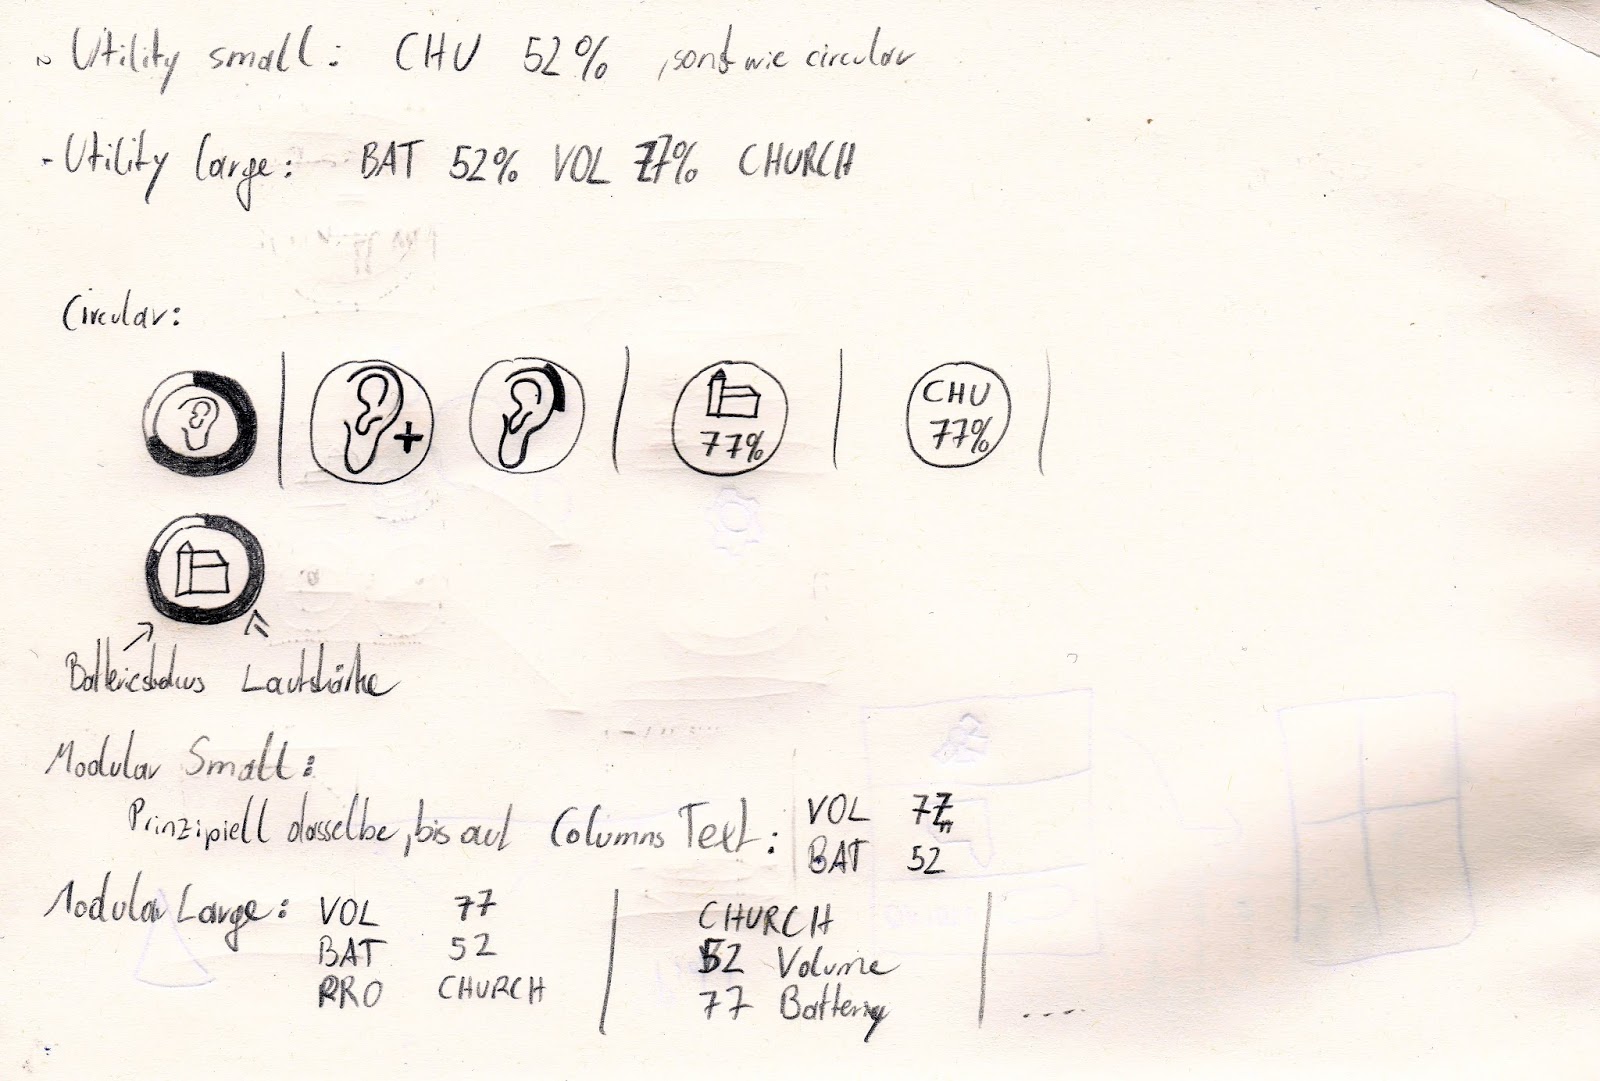 ~ Utility small: CHU 52% , sonst wie circular
- Utility large: BAT 52% VOL 77% CHURCH
Circular:
+
77%
CHU
77%
Batteriestatus Lautstärke
Modular Small:
Prinzipiell dasselbe, bis auf Columns Text:
VOL 77
BAT 52
Modular Large:
VOL 77
BAT 52
PRO CHURCH
CHURCH
52 Volume
77 Battery
....